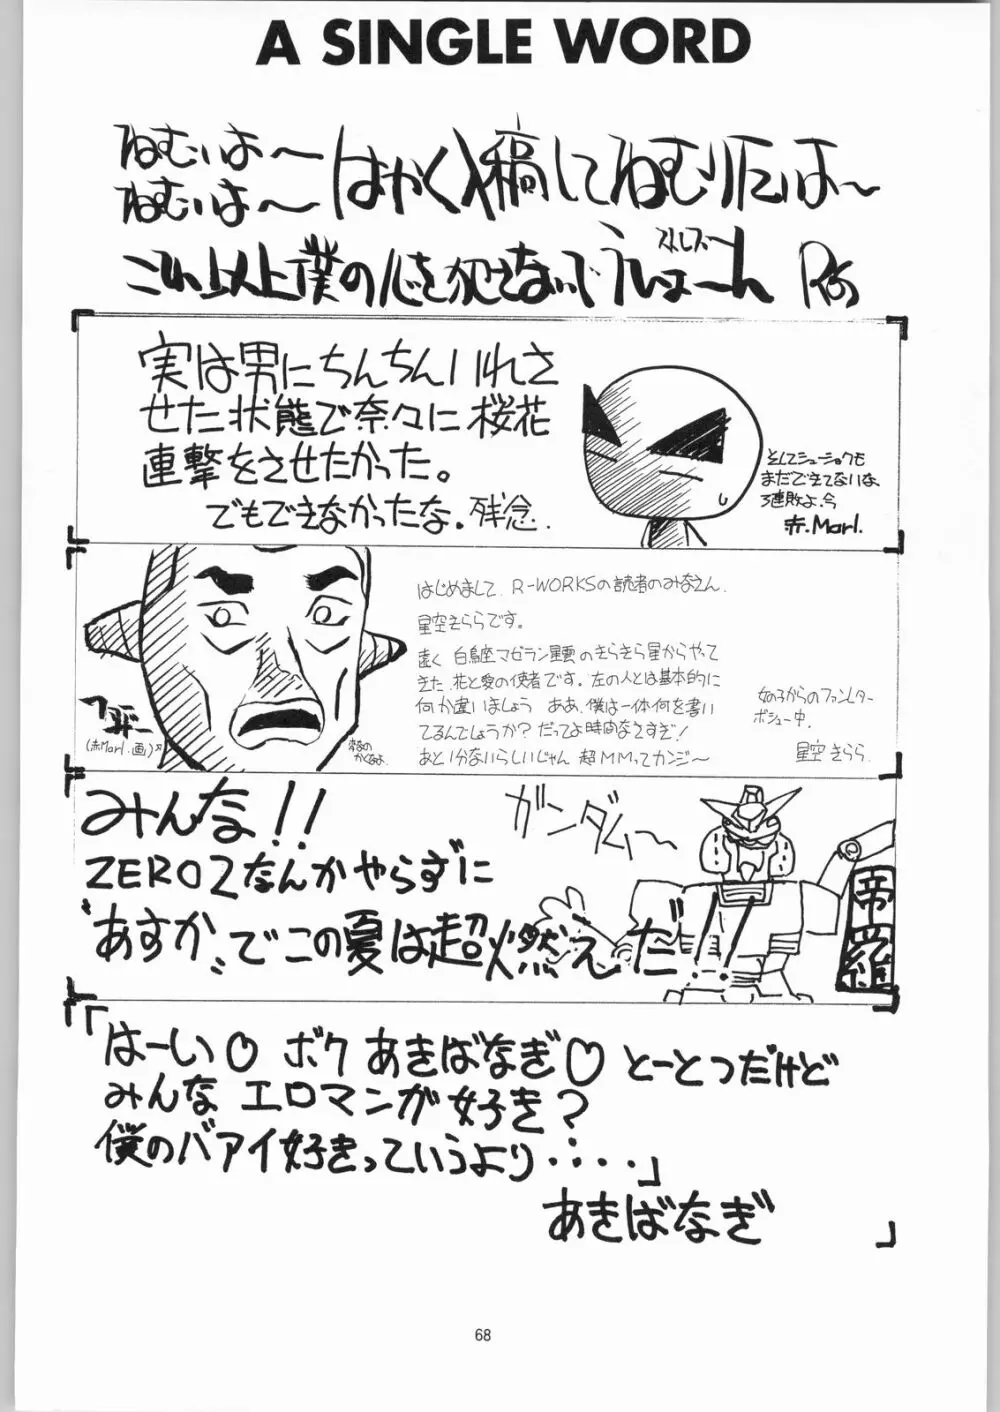 A SINGLE WORD
ねむいよ〜
ねむいよ〜
はやく入稿してねむりたいよ〜
これ以上僕の心を犯さないで
実は男にちんちんいれさ
せた状態で奈々に桜花
連撃をさせたかった。
でもできなかったな。残念.
そしてシューショクも
まだできてないな
3連敗よ、今
赤.Marl.
はじめまして. R-WORKSの読者のみなさん.
星空きららです。
遠く 白鳥座マゼラン星雲のきらきら星からやって
きた 花と愛の使者です。左の人とは基本的に
何か違いましょう ああ、僕は一体何を書い
てるんでしょうか?だってよ時間なさすぎ!
あと1分ないらしいじゃん 超MMってカンジ〜
女の子からのファンレター
ボシュー中.
星空きらら
(赤Marl.画)
みんな!!
ZERO2なんかやらずに
“あすか”でこの夏は超燃えだ!!
ガンダム〜
帝羅
「はーい♡ ボク あきばなぎ♡ とーとつだけど
みんな エロマンガ好き?
僕のバアイ好きっていうより・・・・」
あきばなぎ
68